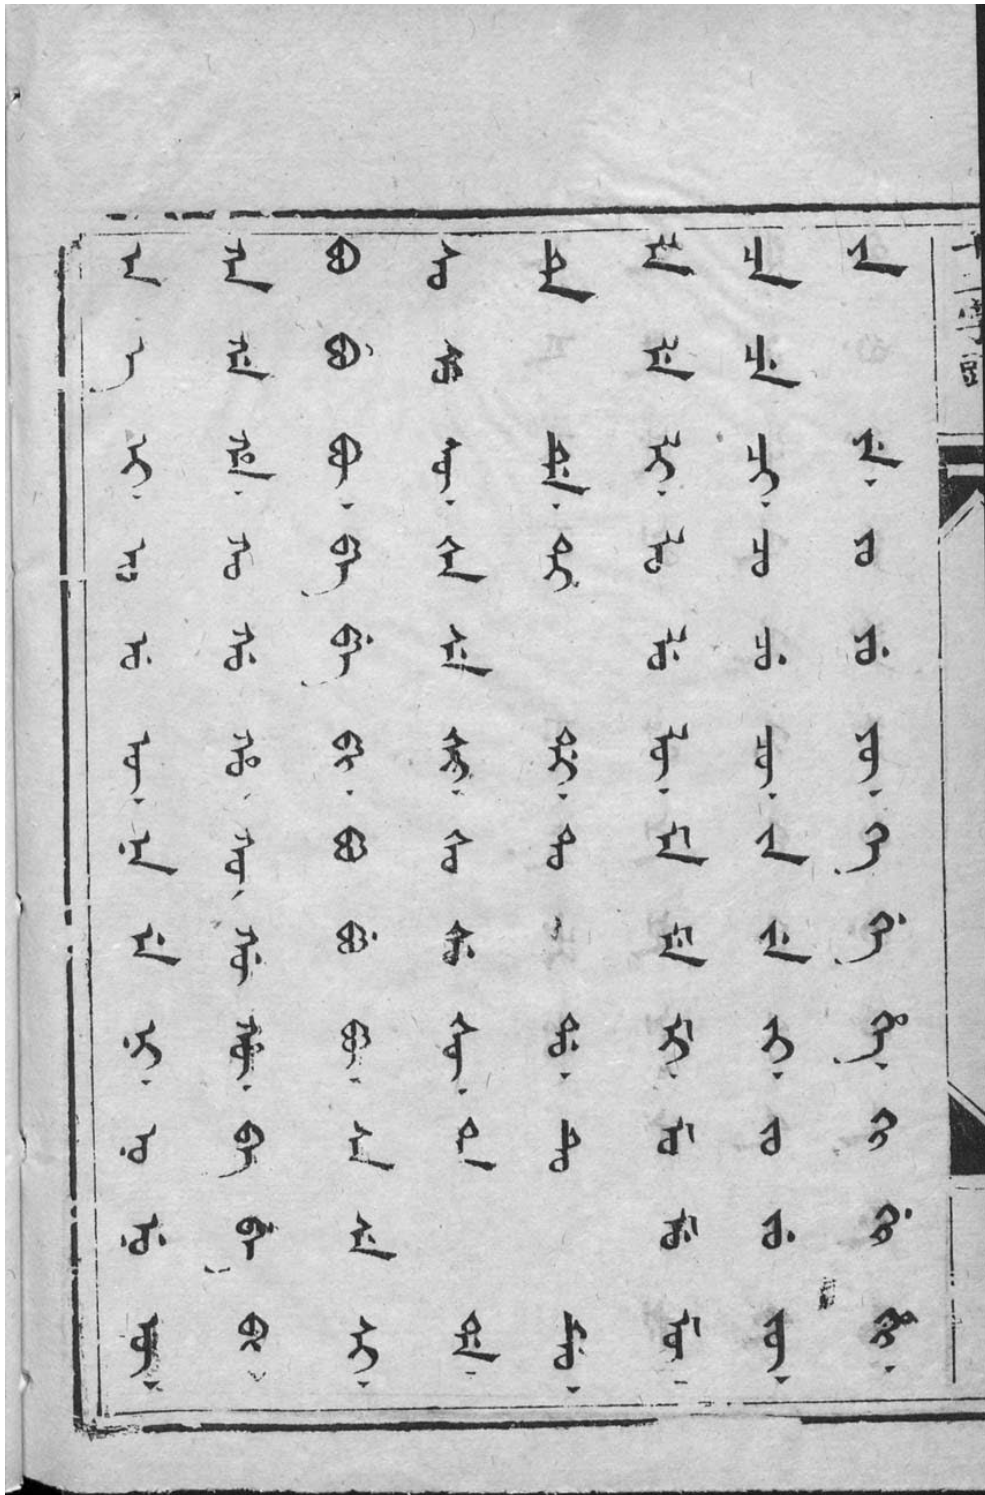 ᠠ ᡝ ᡳ᠈ ᠣ ᡠ ᡡ᠈ ᠨᠠ ᠨᡝ ᠨᡳ᠈ ᠨᠣ ᠨᡠ ᠨᡡ᠈
ᡴᠠ ᡤᠠ ᡥᠠ᠈ ᡴᠣ ᡤᠣ ᡥᠣ᠈ ᡴᡡ ᡤᡡ ᡥᡡ᠈ ᠪᠠ ᠪᡝ ᠪᡳ᠈
ᠪᠣ ᠪᡠ ᠪᡡ᠈ ᡦᠠ ᡦᡝ ᡦᡳ᠈ ᡦᠣ ᡦᡠ ᡦᡡ᠈ ᠰᠠ ᠰᡝ ᠰᡳ᠈
ᠰᠣ ᠰᡠ ᠰᡡ᠈ ᡧᠠ ᡧᡝ ᡧᡳ᠈ ᡧᠣ ᡧᡠ ᡧᡡ᠈ ᡨᠠ ᡩᠠ᠈
ᡨᡝ ᡩᡝ᠈ ᡨᡳ ᡩᡳ᠈ ᡨᠣ ᡩᠣ᠈ ᡨᡠ ᡩᡠ᠈
ᠯᠠ ᠯᡝ ᠯᡳ᠈ ᠯᠣ ᠯᡠ ᠯᡡ᠈ ᠮᠠ ᠮᡝ ᠮᡳ᠈ ᠮᠣ ᠮᡠ ᠮᡡ᠈
ᠴᠠ ᠴᡝ ᠴᡳ᠈ ᠴᠣ ᠴᡠ ᠴᡡ᠈ ᠵᠠ ᠵᡝ ᠵᡳ᠈ ᠵᠣ ᠵᡠ ᠵᡡ᠈
ᠶᠠ ᠶᡝ᠈ ᠶᠣ ᠶᡠ ᠶᡡ᠈ ᡴᡝ ᡤᡝ ᡥᡝ᠈ ᡴᡳ ᡤᡳ ᡥᡳ᠈